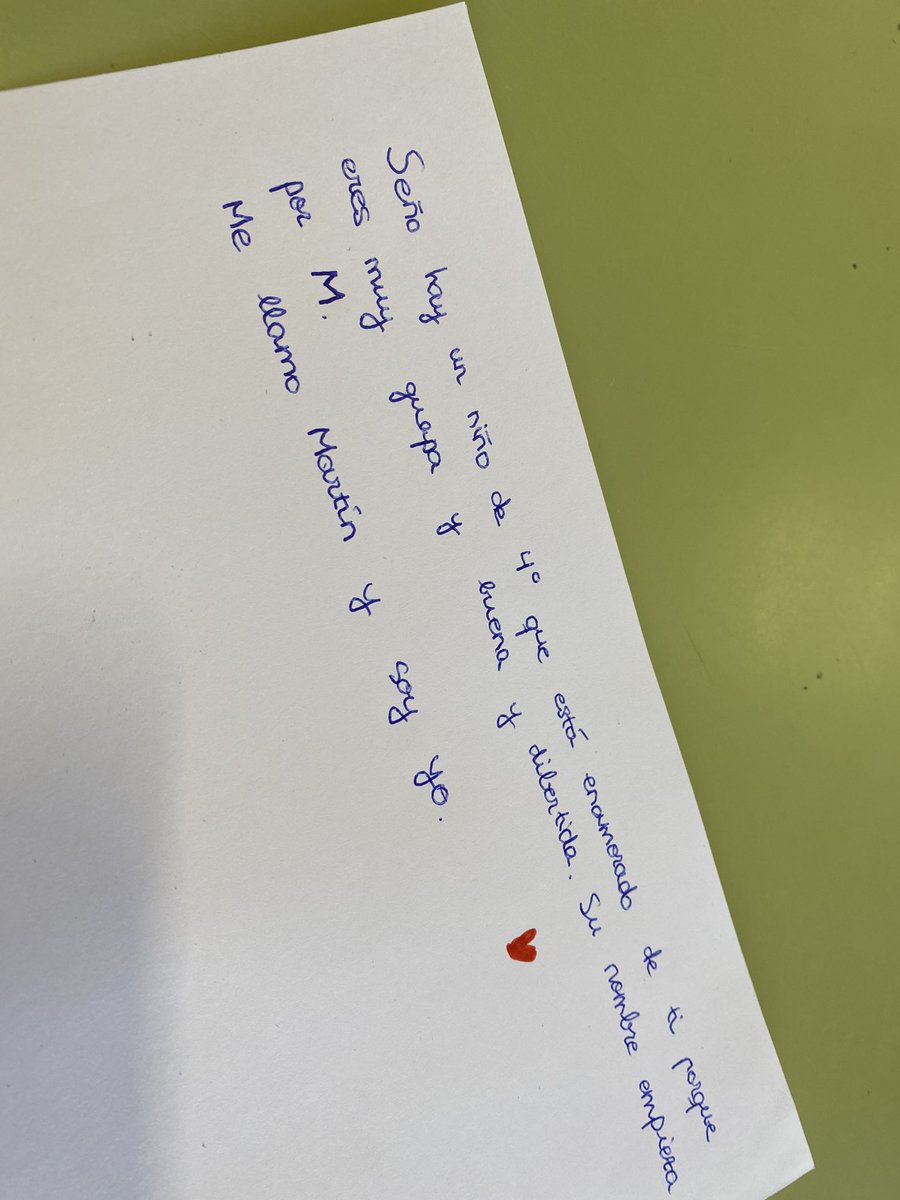 Seño hay un niño de 4º que está enamorado de ti porque
eres muy guapa y buena y dibertida. Su nombre empieza
por M.
Me llamo Martín y soy yo.